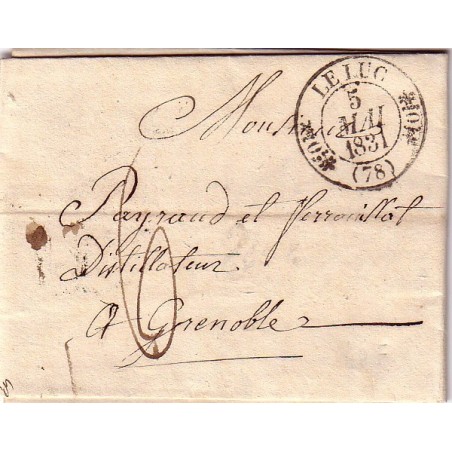 LE LUC
5
MAI
1831
(78)
Monsieur
Payraud et Perrouillat
Distillateur
A Grenoble
6